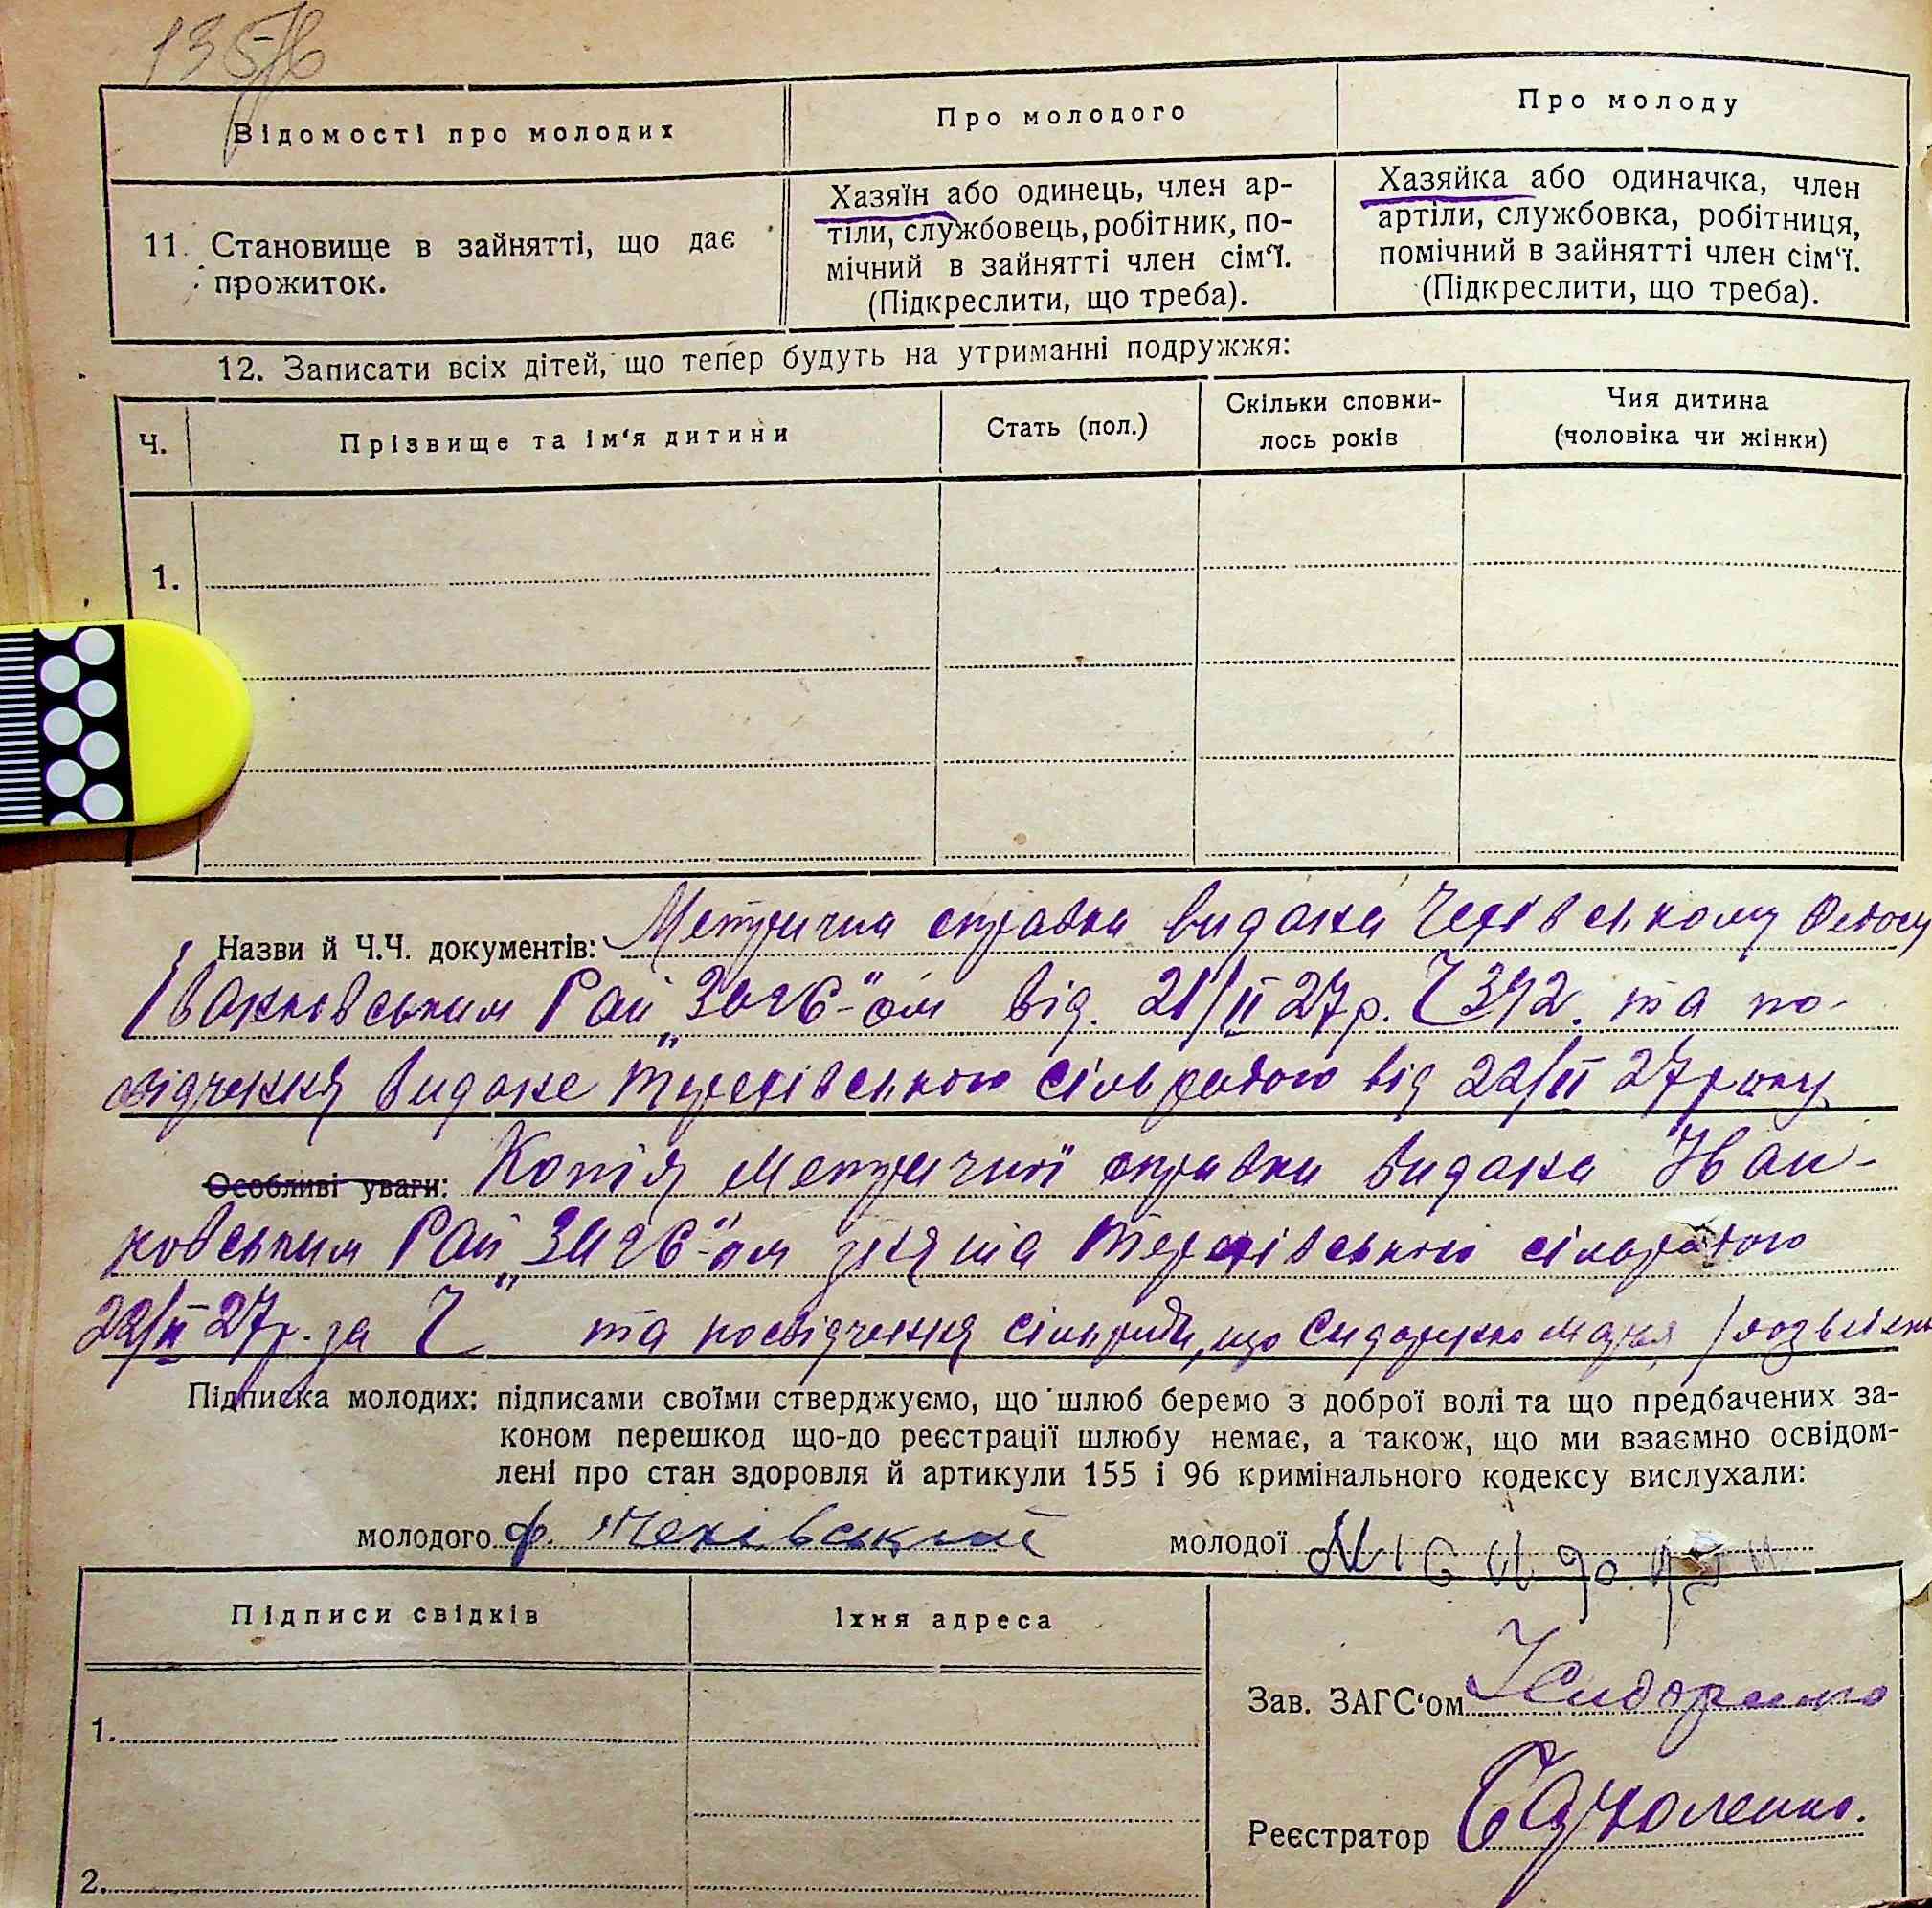 Відомості про молодих
Про молодого
Про молоду
11. Становище в зайнятті, що дає
прожиток.
Хазяїн або одинець, член ар-
тіли, службовець, робітник, по-
мічний в зайнятті член сім'ї.
(Підкреслити, що треба).
Хазяйка або одиначка, член
артіли, службовка, робітниця,
помічний в зайнятті член сім'ї.
(Підкреслити, що треба).
12. Записати всіх дітей, що тепер будуть на утриманні подружжя:
Ч.
Прізвище та ім'я дитини
Стать (пол.)
Скільки сповни-
лось років
Чия дитина
(чоловіка чи жінки)
1.
Назви й Ч.Ч. документів: Метрична справка видана Чехівському Федосу
Іванковським Рай „ЗАГС"-ом від. 21/II 27р. Ч 392. та по-
свідчення видане Терехівською сільрадою від 22/II 27 року
Особливі уваги: Копія метричної справки видана Іван-
ковським Рай „ЗАГС"-ом знята Терехівською сільрадою
22/II 27р. за Ч та посвідчення сільради, що Сидоренко
Підписка молодих: підписами своїми стверджуємо, що шлюб беремо з доброї волі та що предбачених за-
коном перешкод що-до реєстрації шлюбу немає, а також, що ми взаємно освідом-
лені про стан здоровля й артикули 155 і 96 кримінального кодексу вислухали:
молодого ф. Чехівський молодої
Підписи свідків
Їхня адреса
1.
2.
Зав. ЗАГС'ом Сидоренко
Реєстратор